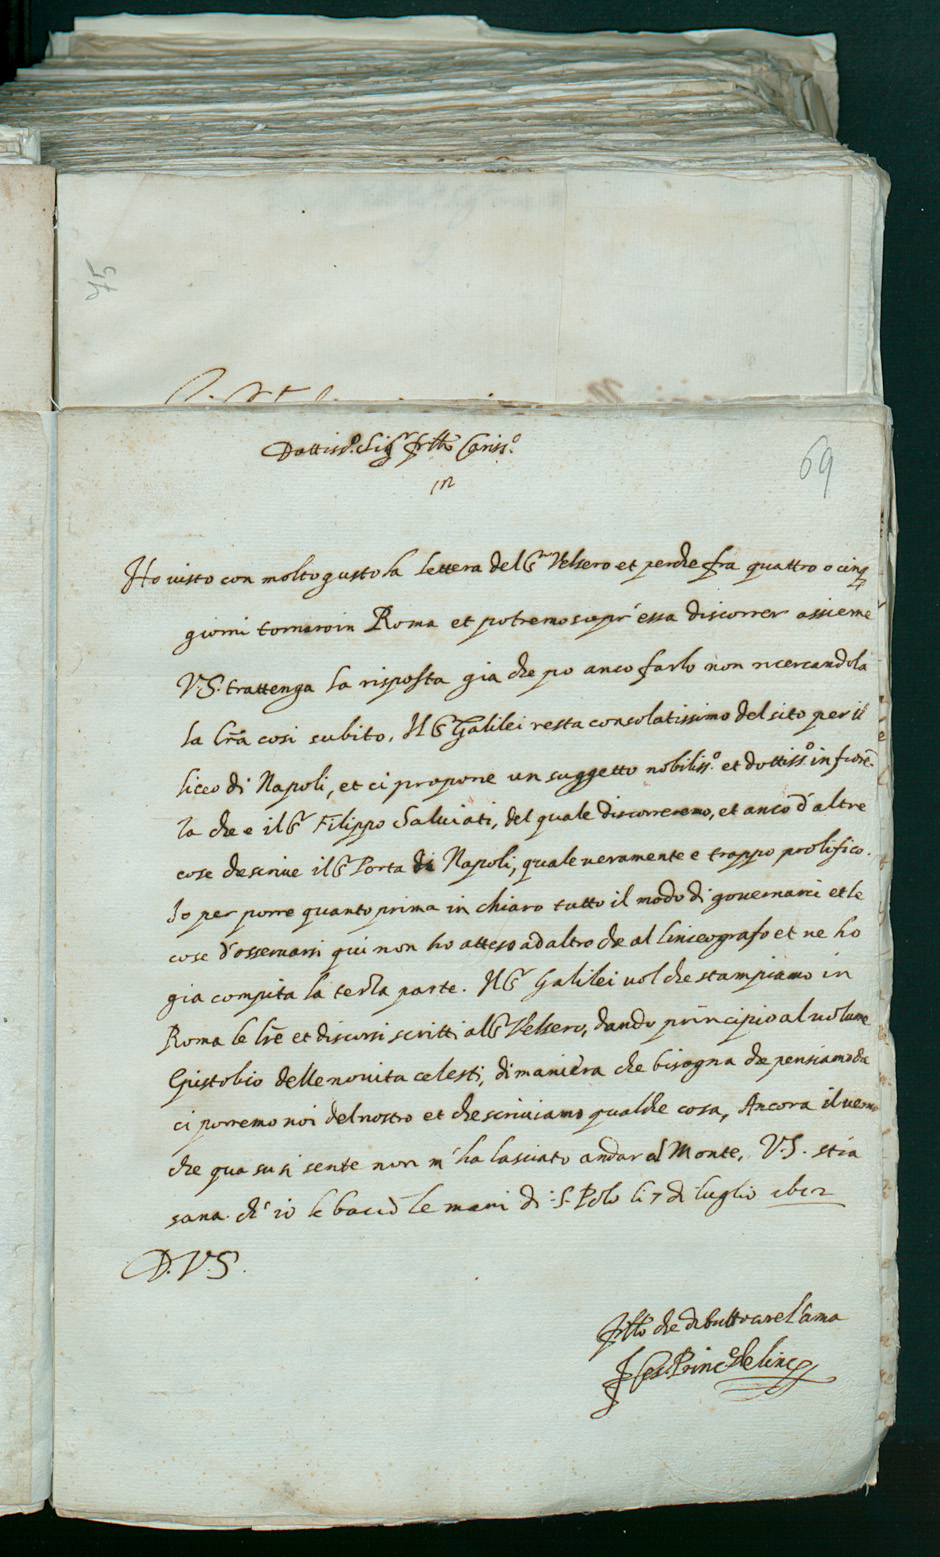 75
Dottiss.º Sig.r frllo Cariss.º
69
Ho visto con molto gusto la lettera del S.r Velsero et perche fra quattro o cinq
giorni tornerò in Roma et potremo sopr'essa discorrer assieme
V.S. trattenga la risposta gia che po anco farlo non ricercandola
la lr̃a cosi subito. Il S.r Galilei resta consolatissimo del sito per il
liceo di Napoli, et ci propone un suggetto nobiliss.º et dottiss.º in fioren
za che e il S.r Filippo Salviati, del quale discorreremo, et anco d'altre
cose che scrive il S.r Porta di Napoli, quale veramente e troppo prolifico.
Io per porre quanto prima in chiaro tutto il modo di governarci et le
cose d'osservarsi qui non ho atteso ad altro che al linceografo et ne ho
gia compita la terza parte. Il S.r Galilei vol che stampiamo in
Roma le lr̃e et discorsi scritti al S.r Velsero, dando principio al volume
Epistolico delle novita celesti, di maniera che bisogna che pensiamo da
ci porremo noi del nostro et che scriviamo qualche cosa, Ancora il
che qua su si sente non m'ha lasciato andar al Monte, V.S. stia
sana. ch'io le bacio le mani di S. Polo li 7 di luglio 1612
D.V.S.
frllo che di buon core l'ama
F Ces. Princ.e de linc